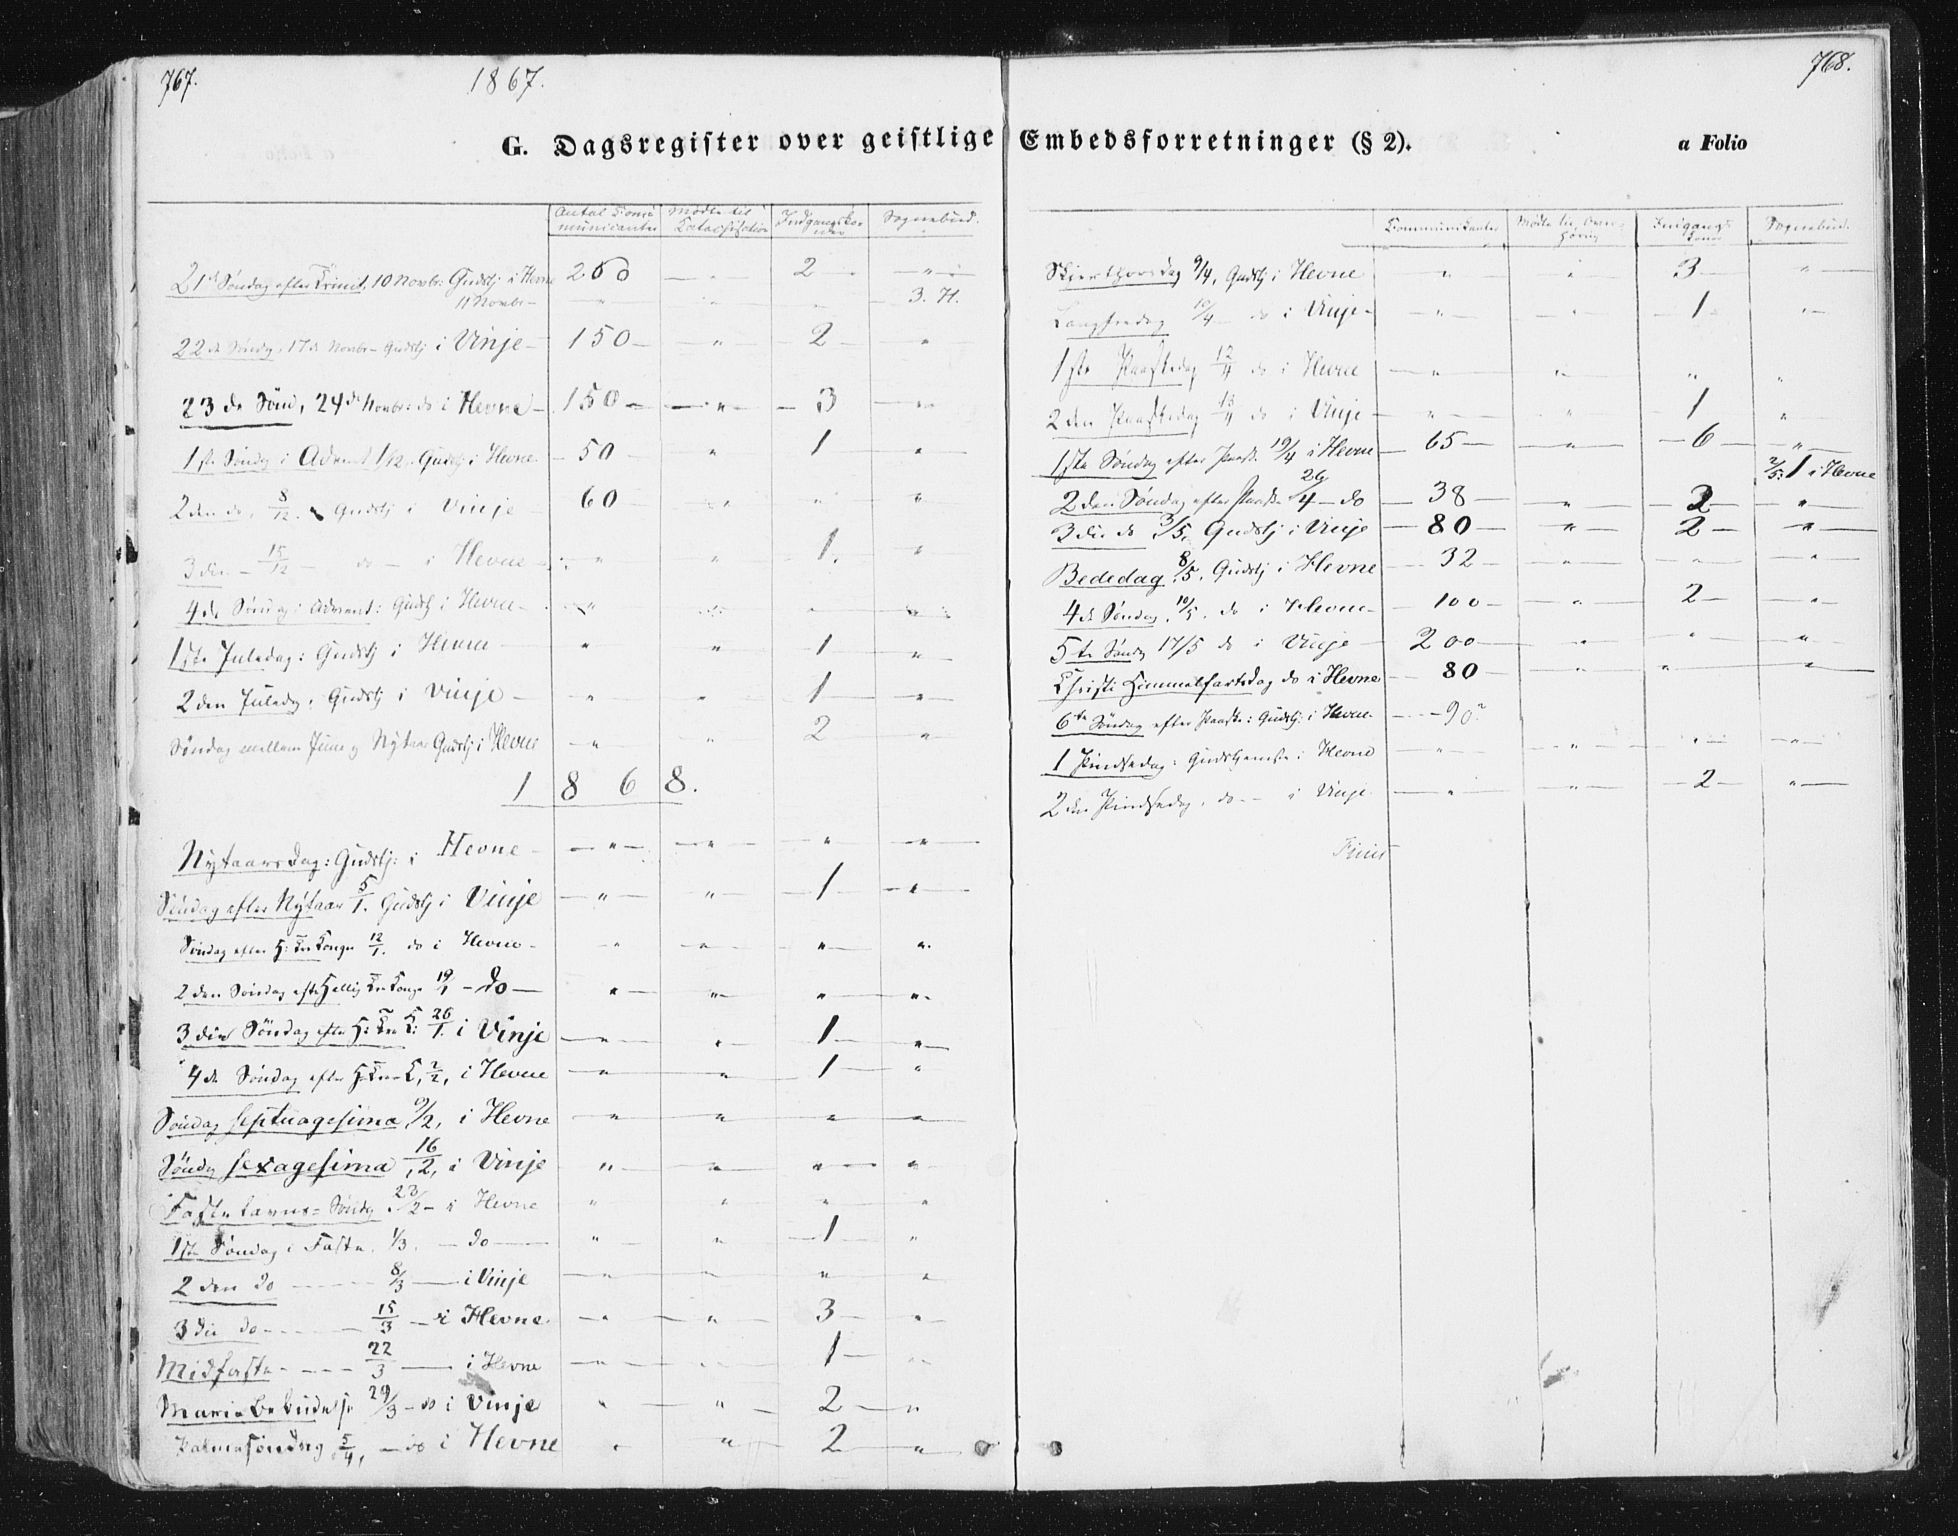 767.
1867.
G. Dagsregister over geistlige
Antal Com- Mødte til Indgangskoner Sognebud.
municanter Catachisation
21de Søndag efter Trinit. 10 Novbr: Gudstj i Hevne 200 — " — 2 — "
11 Novbr — " " " 3. H.
22de Søndg, 17de Novbr — Gudstj i Vinje — 150 — " — 2 — "
23de Sønd, 24de Novbr: do i Hevne — 150 — " — 3 — "
1ste Søndg i Advent 1/12. Gudstj i Hevne 50 " 1 "
2den do, 8/12. Gudstj i Vinje — 60 " " "
3die — 15/12 — do — i Hevne — " " 1. "
4de Søndag i Advent: Gudstj i Hevne — " " " "
1ste Juledag: Gudstj i Hevne " " 1 "
2den Juledg, Gudstj i Vinje — " " 1 "
Søndag mellem Juul og Nytaar Gudstj i Hevne " " 2 "
1868.
Nytaarsdag: Gudstj: i Hevne — " " " "
Søndag efter Nytaar 5/1. Gudstj i Vinje " " 1 "
Søndag efter H: Tre Konger 12/1. do i Hevne — " " " "
2den Søndag efter Hellig Tre Konge 19/1 — do — " " " "
3die Søndag efter H: Tre K: 26/1. i Vinje " " 1 "
4de Søndag efter H. Tre K, 2/2, i Hevne " " 1 "
Søndag Septuagesima 9/2, i Hevne " " " "
Søndg Sexagesima 16/2, i Vinje " " " "
Fastelavns-Søndg 23/2 — i Hevne " " " "
1ste Søndag i Faste. 1/3. — do — " " 1 "
2den do — 8/3 — i Vinje " " " "
3die do — 15/3 — i Hevne " " 3 "
Midfaste — 22/3 — i Hevne " " 1 "
Maria Bebudelse 29/3 — do i Vinje " " 2 "
Palmesøndag 5/4, — do i Hevne " " 2 "
768.
Embedsforretninger (§ 2).
a Folio
Communikanter Mødte til Over- Indgangs Sognebud.
høring koner
Skjærthorsdag 9/4, Gudstj i Hevne " " 3 "
Langfredag 10/4 — do i Vinje — " " 1 "
1ste Paaskedag 12/4 do i Hevne " " " "
2den Paaskedag 13/4 do i Vinje — " " 1 "
1ste Søndag efter Paask. 19/4 i Hevne — 65 — " — 6 — "
2/5: 1 i Hevne
2den Søndag efter Paaske 26/4 — do — 38 — " — 2 — "
3die do 3/5, Gudstj i Vinje — 80 — " — 2 — "
Bededag 8/5, Gudstj i Hevne — 32 — " " "
4de Søndag, 10/5. do i Hevne — 100 — " 2 — "
5te Søndg 17/5 do i Vinje — 200 — " " "
Christi Himmelfartsdag do i Hevne — 80 — " " "
6te Søndag efter Paaske: Gudstj: i Hevne — 90?
1 Pindsedag: Gudstjeneste i Hevne — " " " "
2den Pindsedag, do — i Vinje — " " 2 — "
Finis